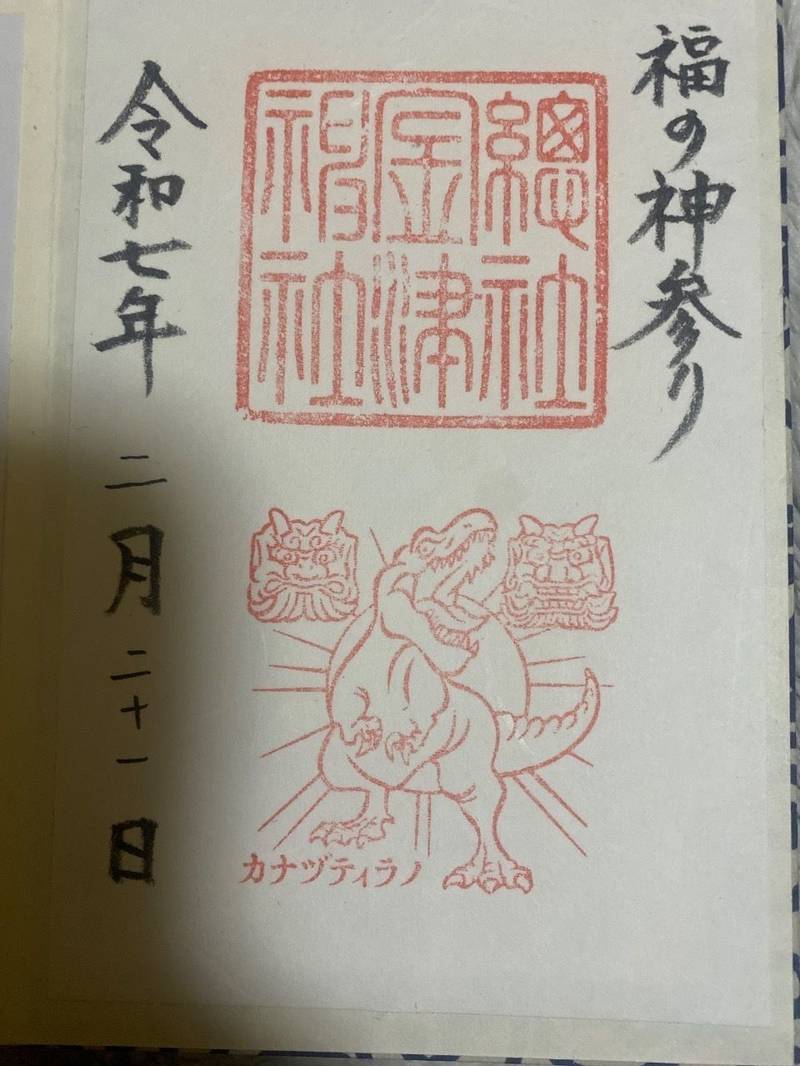 福の神参り
總社
金津
神社
令和七年
二月二十一日
カナヅティラノ